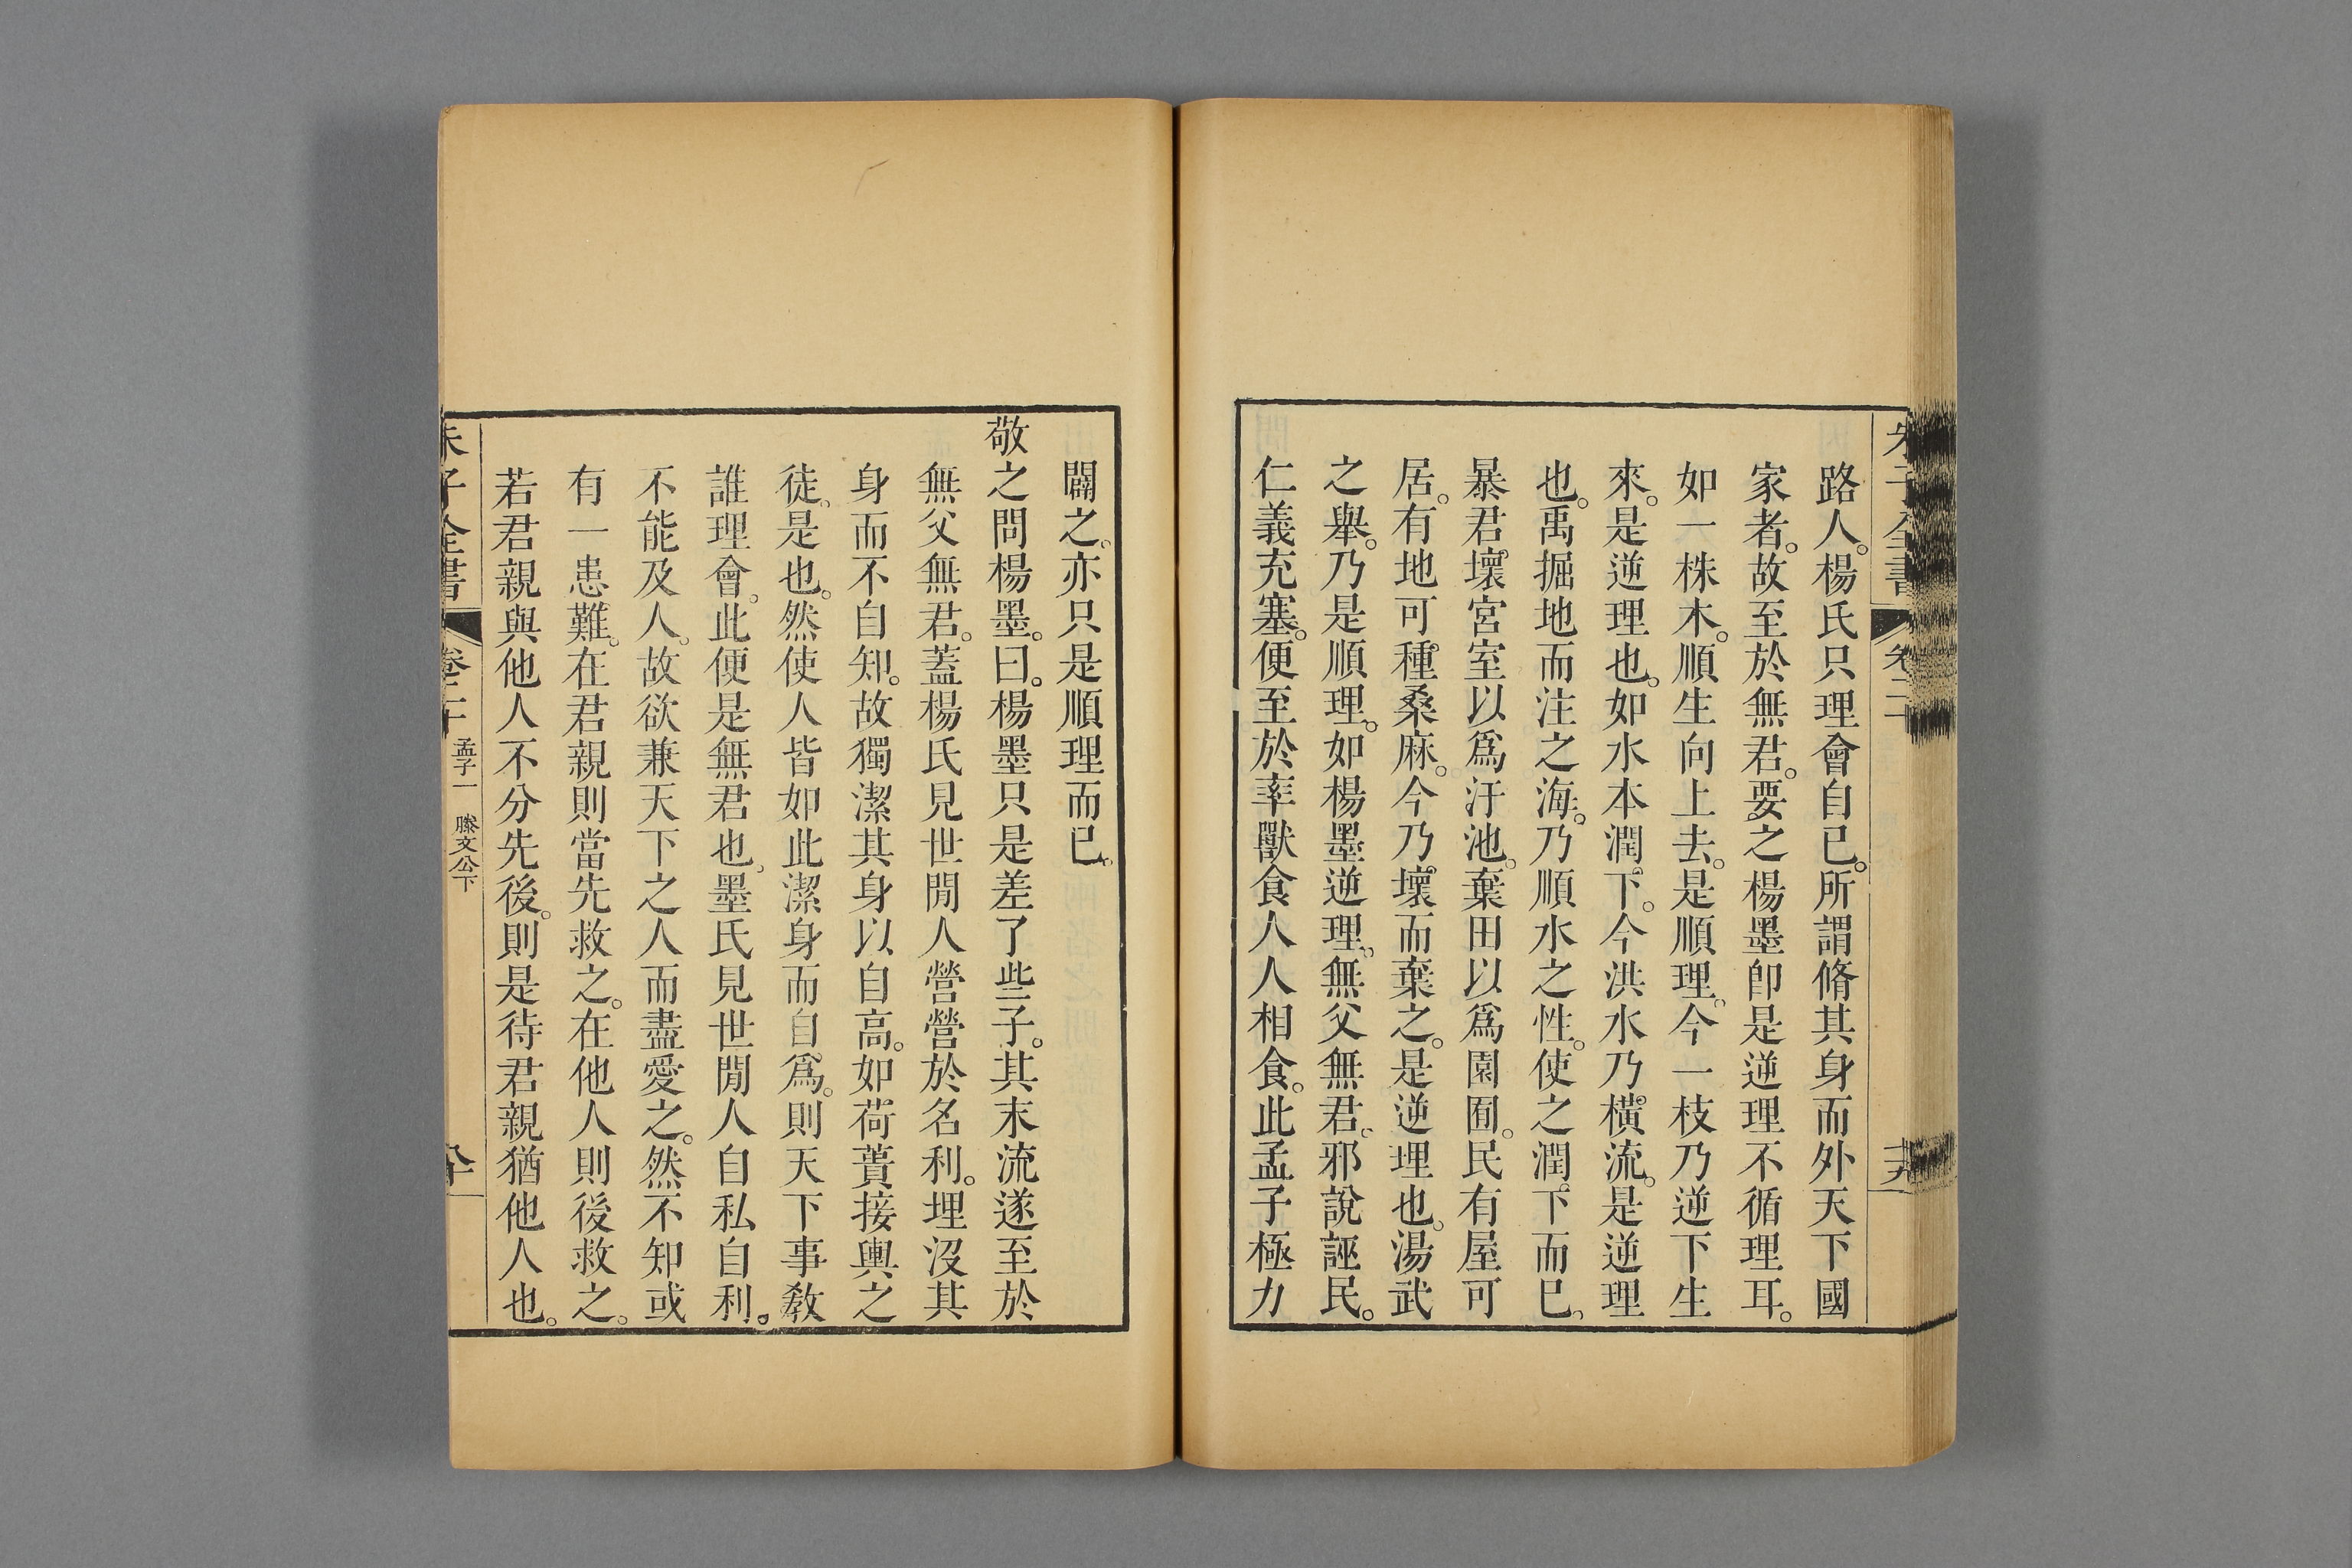 路人。楊氏只理會自已。所謂脩其身而外天下國
家者。故至於無君。要之楊墨卽是逆理不循理耳。
如一株木。順生向上去。是順理。今一枝乃逆下生
來。是逆理也。如水本潤下。今洪水乃橫流。是逆理
也。禹掘地而注之海。乃順水之性。使之潤下而已。
暴君壞宮室以爲汙池。棄田以爲園囿。民有屋可
居。有地可種桑麻。今乃壞而棄之。是逆理也。湯武
之舉。乃是順理。如楊墨逆理。無父無君。邪說誣民。
仁義充塞。便至於率獸食人人相食。此孟子極力
闢之。亦只是順理而已。
敬之問楊墨。曰。楊墨只是差了些子。其末流遂至於
無父無君。蓋楊氏見世閒人營營於名利。埋沒其
身而不自知。故獨潔其身以自高。如荷蕢接輿之
徒。是也。然使人皆如此潔身而自爲。則天下事敎
誰理會。此便是無君也。墨氏見世閒人自私自利。
不能及人。故欲兼天下之人而盡愛之。然不知或
有一患難。在君親則當先救之。在他人則後救之。
若君親與他人不分先後。則是待君親猶他人也。
朱子全書 卷二十 孟子一 滕文公下